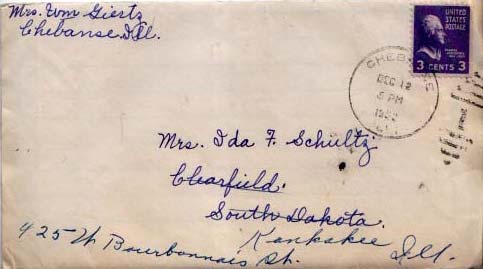 Mrs. Wm Giertz
Chebanse Ill.
UNITED
STATES
POSTAGE
3 CENTS 3
DEC 12
5 PM
Mrs. Ida F. Schultz
Clearfield.
South Dakota.
Kankakee Ill.
425 W Bourbonnais St.